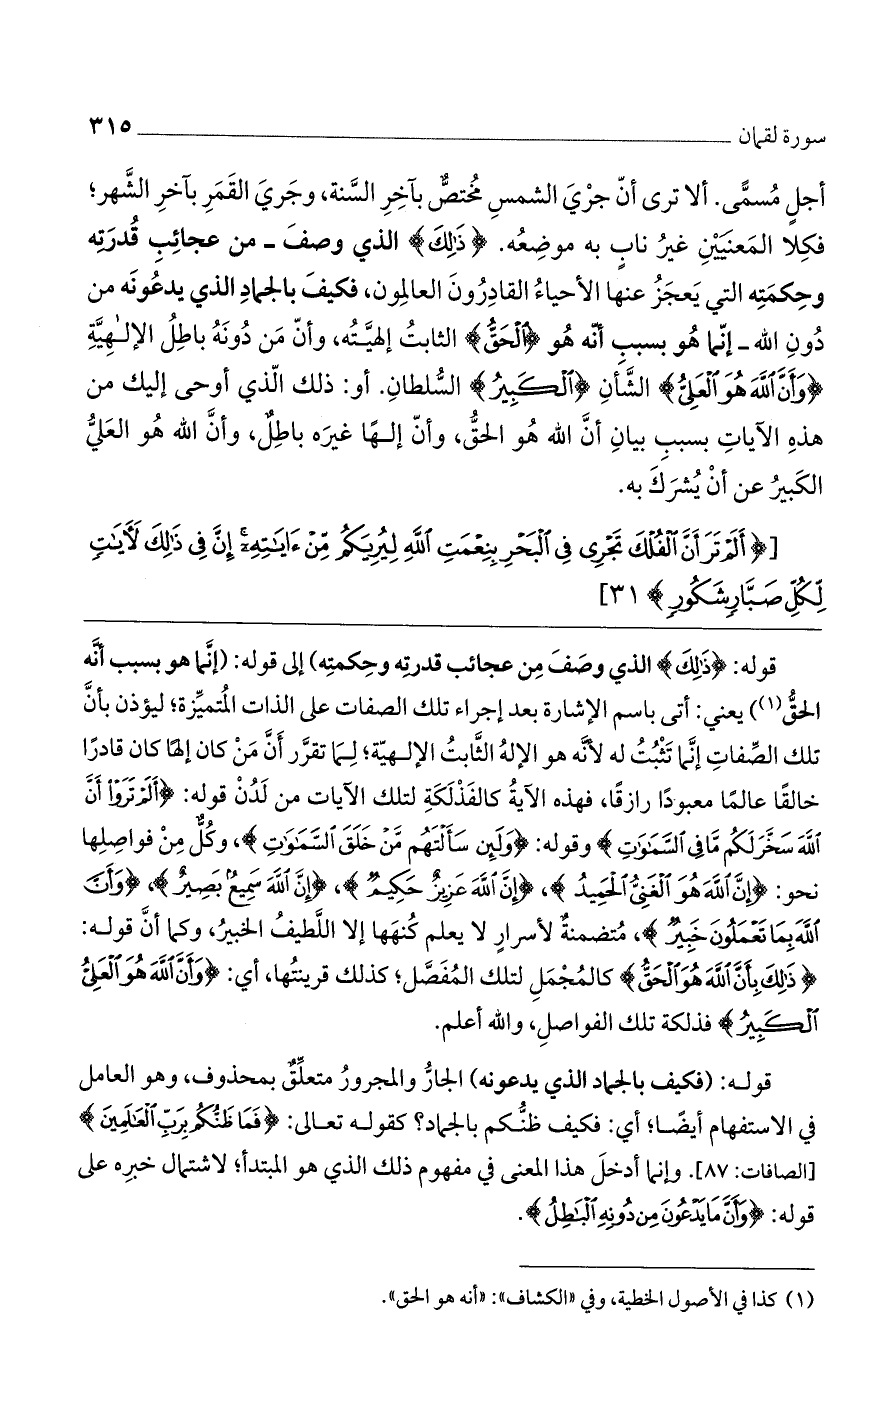 سورة لقمان ٣١٥
أجلٍ مُسمًّى. ألا ترى أنّ جرْيَ الشمسِ مُختصٌّ بآخِرِ السَّنة، وجَريَ القَمَرِ بآخرِ الشَّهر؛
فكِلا المَعنَيَيْنِ غيرُ نابٍ به موضِعُه. ﴿ذَٰلِكَ﴾ الذي وصفَ ـ من عجائِبِ قُدرَتِه
وحِكمَتِه التي يَعجَزُ عنها الأحياءُ القادِرُونَ العالِمون، فكيفَ بالجمادِ الذي يدعُونَه من
دُونِ الله ـ إنّما هُو بسببِ أنّه هُو ﴿ٱلْحَقُّ﴾ الثابتُ إلهيَّتُه، وأنّ مَن دُونَهُ باطِلُ الإلٰهِيَّةِ
﴿وَأَنَّ ٱللَّهَ هُوَ ٱلْعَلِيُّ﴾ الشَّأنِ ﴿ٱلْكَبِيرُ﴾ السُّلطانِ. أو: ذلك الّذي أوحى إليك من
هذهِ الآياتِ بسببِ بيانِ أنَّ الله هُو الحقُّ، وأنّ إلـهًا غيرَه باطِلٌ، وأنَّ الله هُو العَليُّ
الكَبيرُ عن أنْ يُشرَكَ به.
[﴿أَلَمْ تَرَ أَنَّ ٱلْفُلْكَ تَجْرِى فِى ٱلْبَحْرِ بِنِعْمَتِ ٱللَّهِ لِيُرِيَكُم مِّنْ ءَايَٰتِهِۦٓ إِنَّ فِى ذَٰلِكَ لَءَايَٰتٍ
لِّكُلِّ صَبَّارٍ شَكُورٍ﴾ ٣١]
قوله: ﴿ذَٰلِكَ﴾ الذي وصَفَ مِن عجائب قدرتِه وحِكمتِه) إلى قوله: (إنَّما هو بسبب أنَّه
الحقُّ(١)) يعني: أتى باسم الإشارة بعد إجراء تلك الصفات على الذات المُتميِّزة؛ ليؤذن بأنَّ
تلك الصِّفاتِ إنَّما تَثْبُتُ له لأنَّه هو الإلهُ الثَّابتُ الإلـهيّة؛ لِـمَا تقرَّر أنَّ مَنْ كان إلهًا كان قادرًا
خالقًا عالمًا معبودًا رازقًا، فهذه الآيةُ كالفَذْلَكَةِ لتلك الآيات من لَدُنْ قوله: ﴿أَلَمْ تَرَوْا أَنَّ
ٱللَّهَ سَخَّرَ لَكُم مَّا فِى ٱلسَّمَٰوَٰتِ﴾ وقوله: ﴿وَلَئِن سَأَلْتَهُم مَّنْ خَلَقَ ٱلسَّمَٰوَٰتِ﴾، وكُلٌّ مِنْ فواصِلِها
نحو: ﴿إِنَّ ٱللَّهَ هُوَ ٱلْغَنِىُّ ٱلْحَمِيدُ﴾، ﴿إِنَّ ٱللَّهَ عَزِيزٌ حَكِيمٌ﴾، ﴿إِنَّ ٱللَّهَ سَمِيعٌۢ بَصِيرٌ﴾، ﴿وَأَنَّ
ٱللَّهَ بِمَا تَعْمَلُونَ خَبِيرٌ﴾، مُتضمنةٌ لأسرارٍ لا يعلم كُنهَها إلا اللَّطيفُ الخبيرُ، وكما أنَّ قولـه:
﴿ذَٰلِكَ بِأَنَّ ٱللَّهَ هُوَ ٱلْحَقُّ﴾ كالمُجْمَلِ لتلك المُفَصَّل؛ كذلك قرينتُها، أي: ﴿وَأَنَّ ٱللَّهَ هُوَ ٱلْعَلِىُّ
ٱلْكَبِيرُ﴾ فذلكة تلك الفواصلِ، والله أعلم.
قولـه: (فكيف بالجماد الذي يدعونه) الجارُّ والمجرورُ متعلِّقٌ بمحذوف، وهو العامل
في الاستفهام أيضًـا؛ أي: فكيف ظنُّـكم بالجماد؟ كقولـه تعـالى: ﴿فَمَا ظَنُّكُم بِرَبِّ ٱلْعَٰلَمِينَ﴾
[الصافات: ٨٧]. وإنما أدخلَ هذا المعنى في مفهوم ذلك الذي هو المبتدأ؛ لاشتمال خبرِه على
قوله: ﴿وَأَنَّ مَا يَدْعُونَ مِن دُونِهِ ٱلْبَٰطِلُ﴾.
(١) كذا في الأصول الخطية، وفي «الكشاف»: «أنه هو الحق».